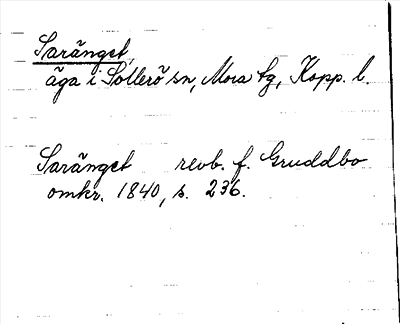 Saränget,
äga i Sollerö sn, Mora tg, Kopp. l.
Saränget revb. f. Gruddbo
omkr. 1840, s. 236.